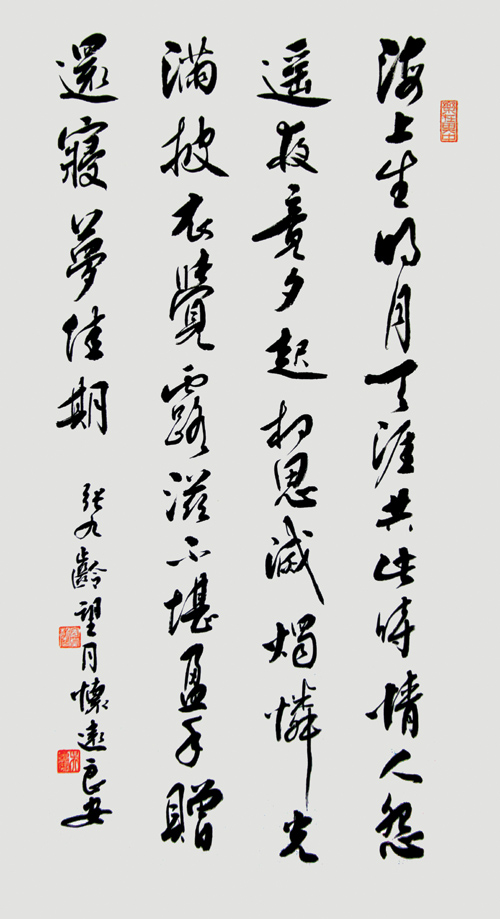 海上生明月天涯共此時情人怨
遥夜竟夕起相思滅燭憐光
滿披衣覺露滋不堪盈手贈
還寢夢佳期
張九齡望月懷遠